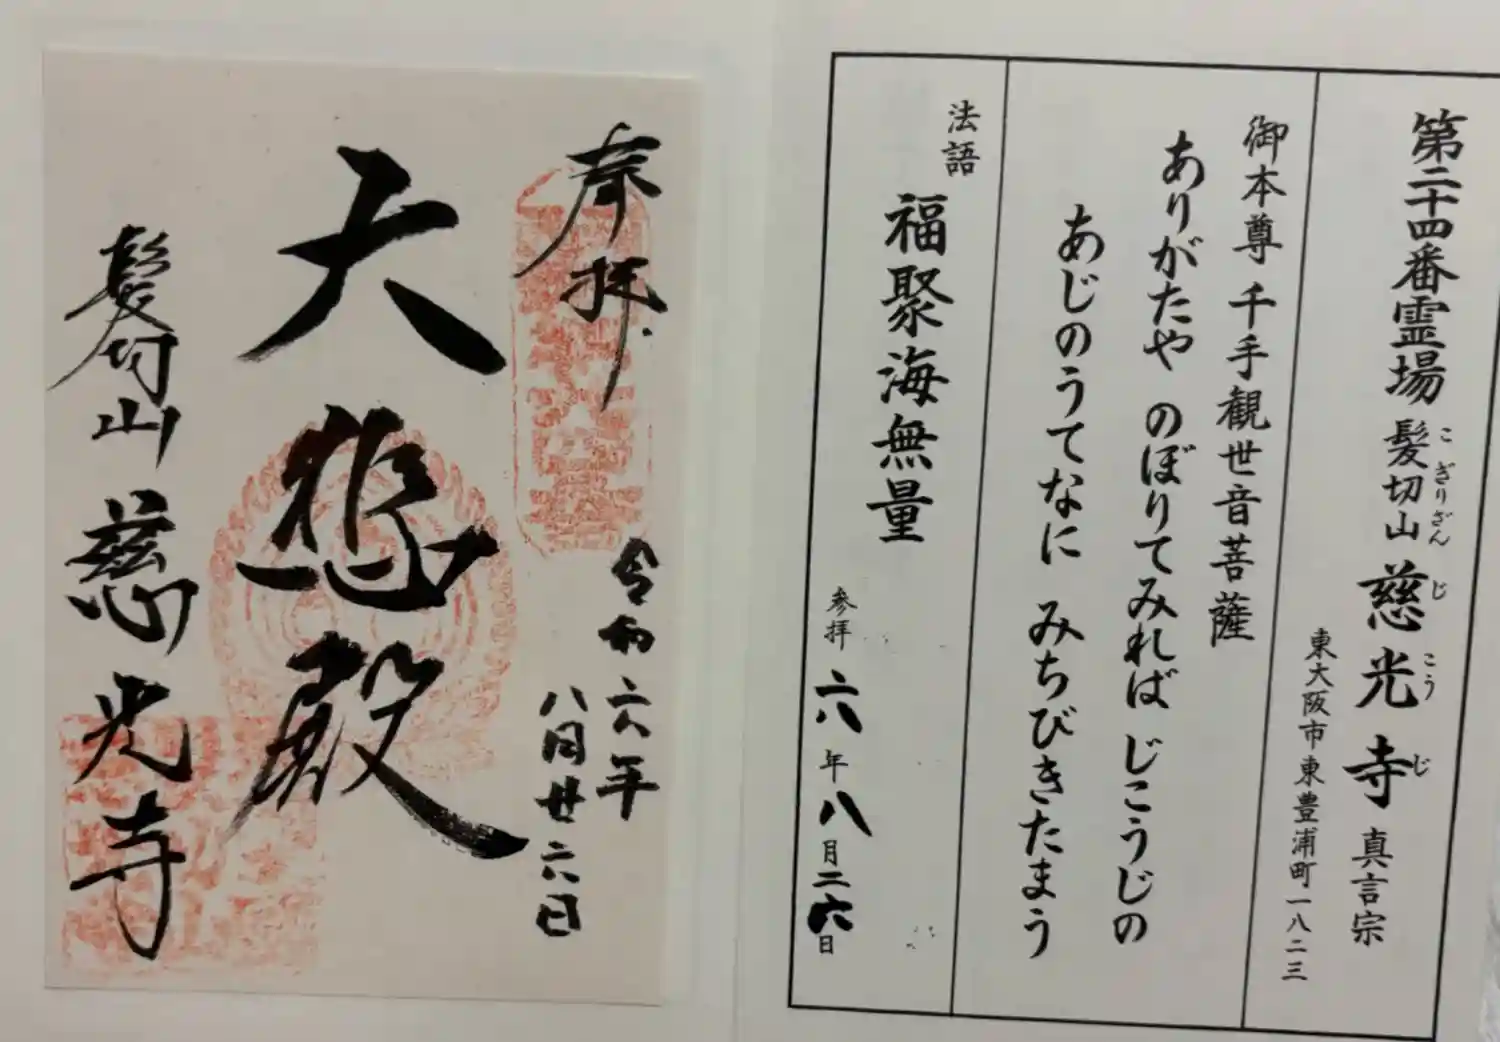 第二十四番霊場 髪切山 慈光寺 真言宗
こぎりざん じこうじ
東大阪市東豊浦町一八二三
御本尊 千手観世音菩薩
ありがたや のぼりてみれば じこうじの
あじのうてなに みちびきたまう
法語 福聚海無量
参拝 六年八月二六日
奉拝
令和六年
八月廿六日
大悲殿
髪切山 慈光寺